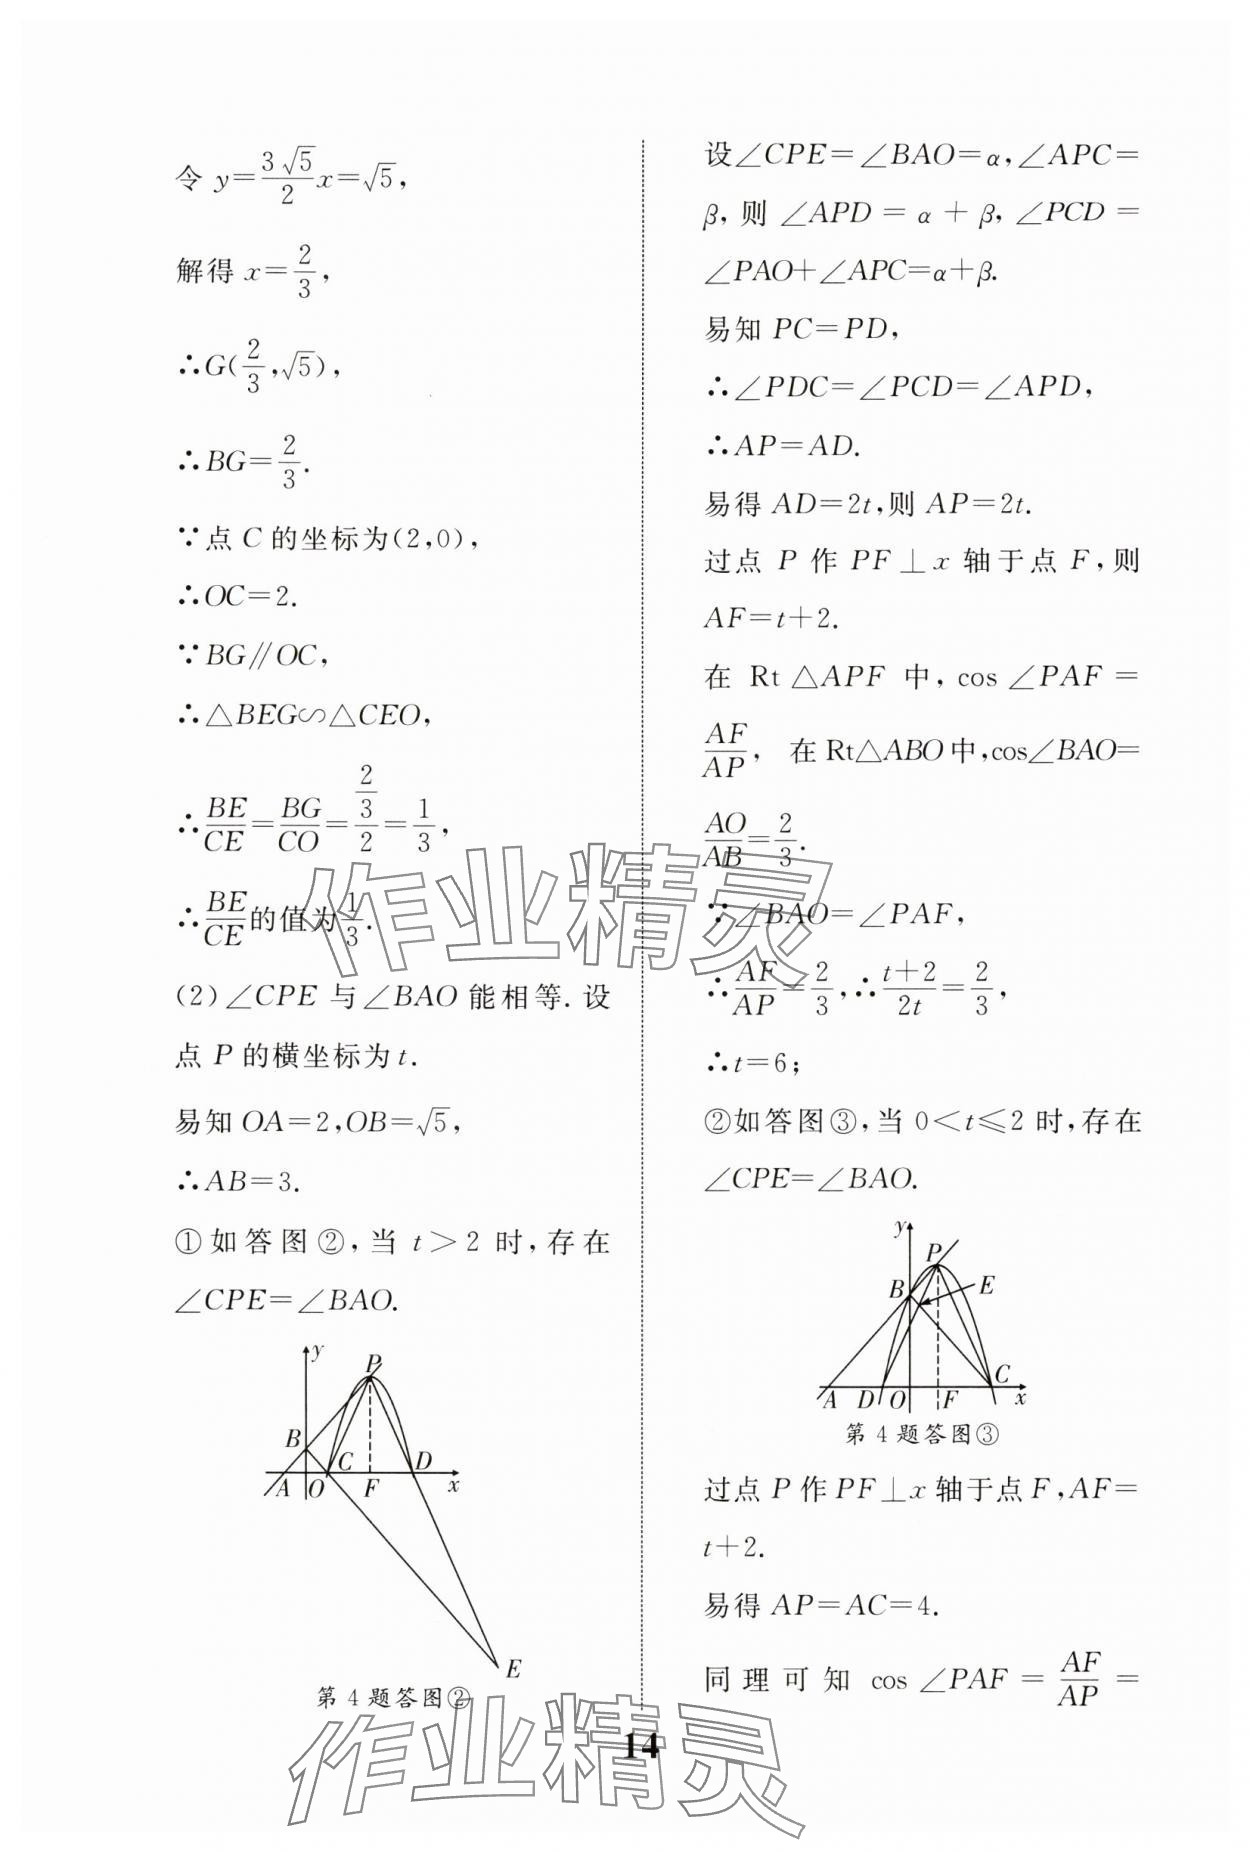 令 y=3√5/2 x=√5,
解得 x=2/3,
∴G(2/3,√5),
∴BG=2/3.
∵点 C 的坐标为(2,0),
∴OC=2.
∵BG∥OC,
∴△BEG∽△CEO,
∴BE/CE=BG/CO=(2/3)/2=1/3,
∴BE/CE的值为1/3.
(2)∠CPE 与∠BAO 能相等. 设
点 P 的横坐标为 t.
易知 OA=2,OB=√5,
∴AB=3.
①如答图②,当 t>2 时,存在
∠CPE=∠BAO.
y
P
B
C
D
A
O
F
x
E
第 4 题答图②
设∠CPE=∠BAO=α,∠APC=
β,则 ∠APD = α + β, ∠PCD =
∠PAO+∠APC=α+β.
易知 PC=PD,
∴∠PDC=∠PCD=∠APD,
∴AP=AD.
易得 AD=2t,则 AP=2t.
过点 P 作 PF⊥x 轴于点 F,则
AF=t+2.
在 Rt △APF 中, cos ∠PAF =
AF/AP, 在 Rt△ABO 中,cos∠BAO=
AO/AB=2/3.
∵∠BAO=∠PAF,
∴AF/AP=2/3,∴t+2/2t=2/3,
∴t=6;
②如答图③,当 0<t≤2 时,存在
∠CPE=∠BAO.
y
P
B
E
C
A
D
O
F
x
第 4 题答图③
过点 P 作 PF⊥x 轴于点 F,AF=
t+2.
易得 AP=AC=4.
同理可知 cos ∠PAF = AF/AP =
14
作业精灵
作业精灵